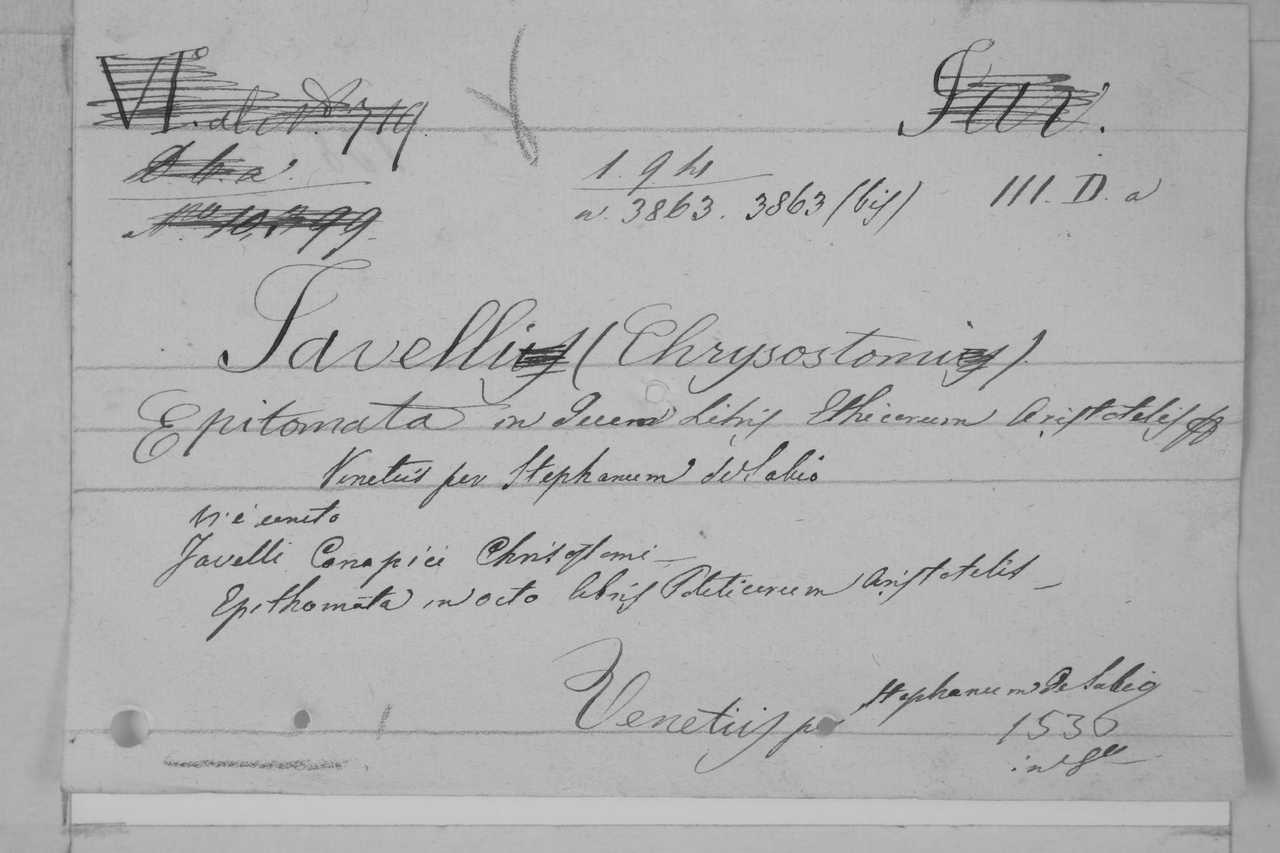 VI. al N.º 719.
Jav.
D. b. a.
1. 9 hs
n. 3863. 3863 (bis)
III. D. a
Javelli (Chrysostomi).
Epitomata in decem Libris Ethicorum Aristotelis
Venetiis per Stephanum de Sabio
Vi è unito
Javelli Canapici Chrisostomi _
Epithomata in octo libris Politicorum Aristotelis _
Venetiis per Stephanum de Sabio
1536
in 8º